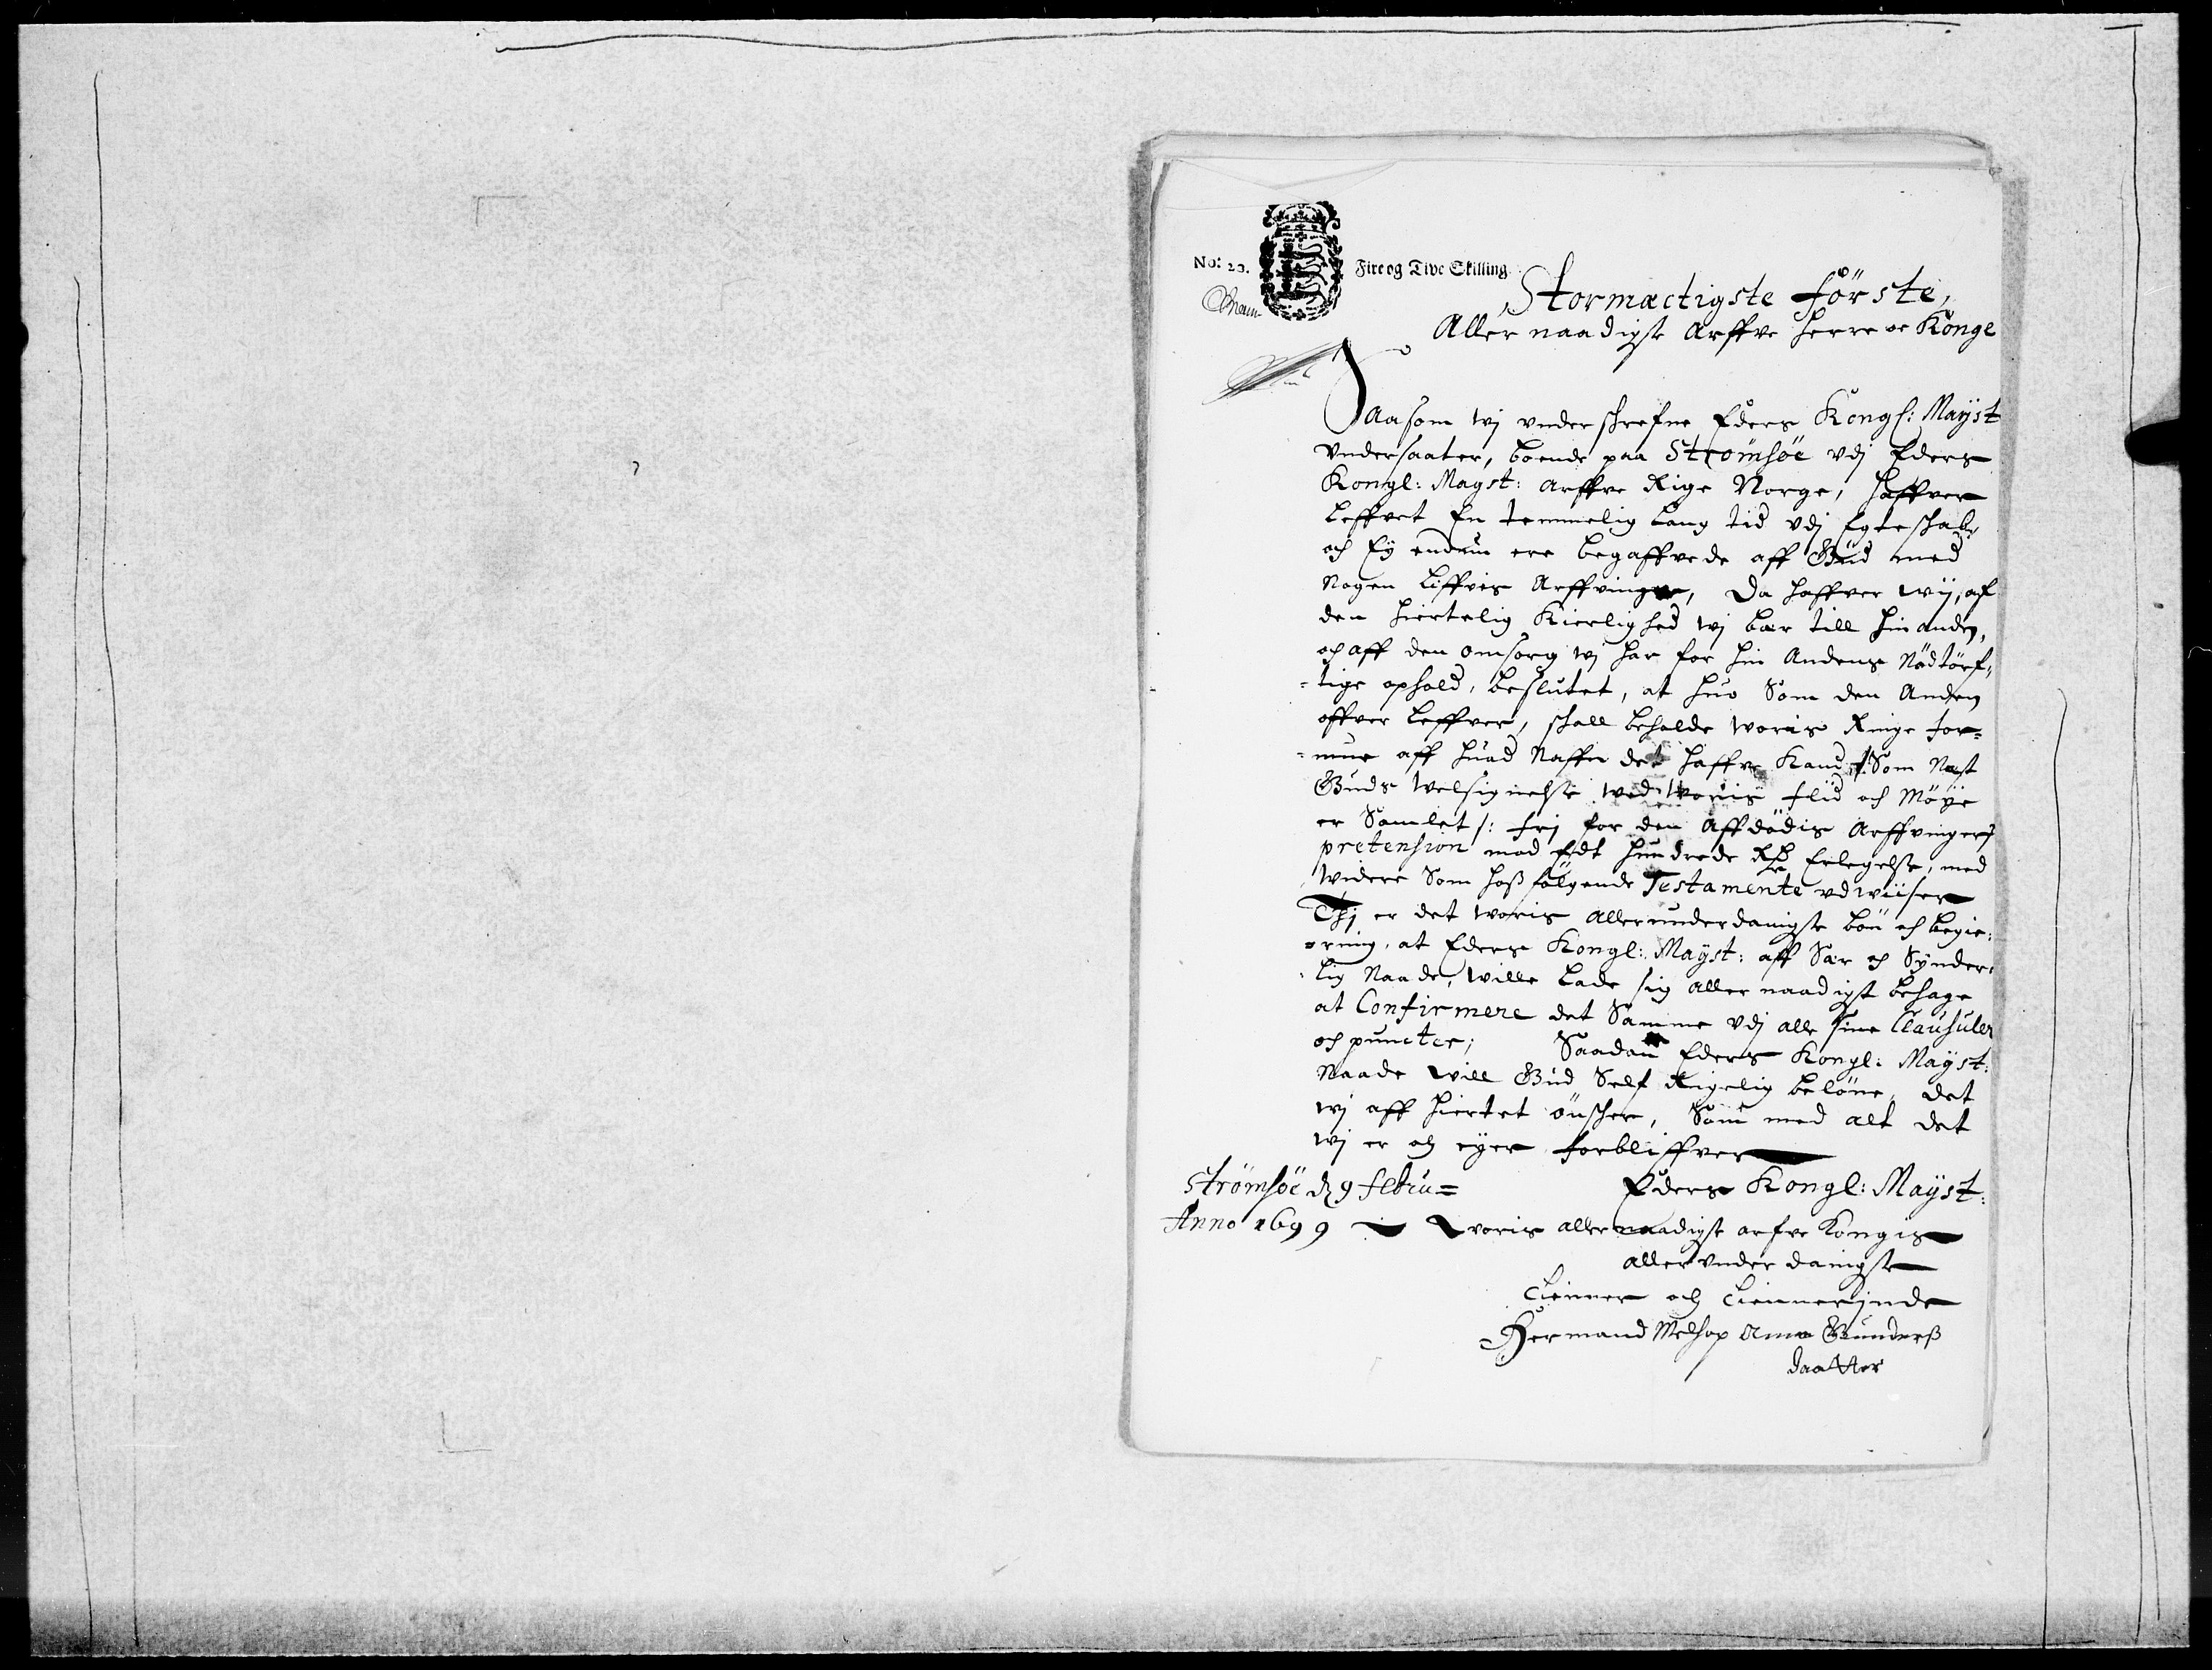 No: 23.
Fire og Tive Skilling
Stormæctigste Förste,
Aller naadigste Arffve Herre oc Konge
Saasom wj underschrefne Eders Kongl: Maÿst
Undersaater, boende paa Strömsöe udj Eders
Kongl: Mayst: Arffve Rige Norge, haffver
Leffvet En temmelig Lang tid udj Egteschab,
och Eÿ endnu ere begaffvede aff Gud med
Nogen Liffvis Arffvinger, Da haffver wij, af
den hiertelig Kierlighed wj bær till hin anden,
och aff den omsorg wj har for hin Andens Nödtörf,
=tige ophold, besluttet, at huo Som den Anden
offver Leffver, schall beholde woris Ringe for=
=mue aff huad Naffn det haffve Kand /: Som Næst
Guds Welsignelse wed woris flid och Möÿe
er Samlet /: frj for den Affdödis Arffvingers
pretension mod Et hundrede Rd Erlegelse, med
widere Som hoßfölgende Testamente udwiiser
Thj er det woris Allerunderdanigste bön och begie:
=ring, at Eders Kongl: Maÿst: aff Sær och Sÿnder=
lig Naade, wille Lade sig aller naadigst behage
at Confirmere det Samme Udj alle sine Clausuler
och puncter; Saadan Eders Kongl: Maÿst:
Naade will Gud Self Rigelig belöne, det
wj aff hiertet önscher, Som med alt det
wj er och eÿer forbliffver
Strömsöe d 9 Febru=
Eders Kongl: Maÿst:
Anno 1699
woris allernaadigste arfve Kongis
allerunderdanigste
Tienner och Tiennerinde
Hermand Melsop Anna Gunders
daatter